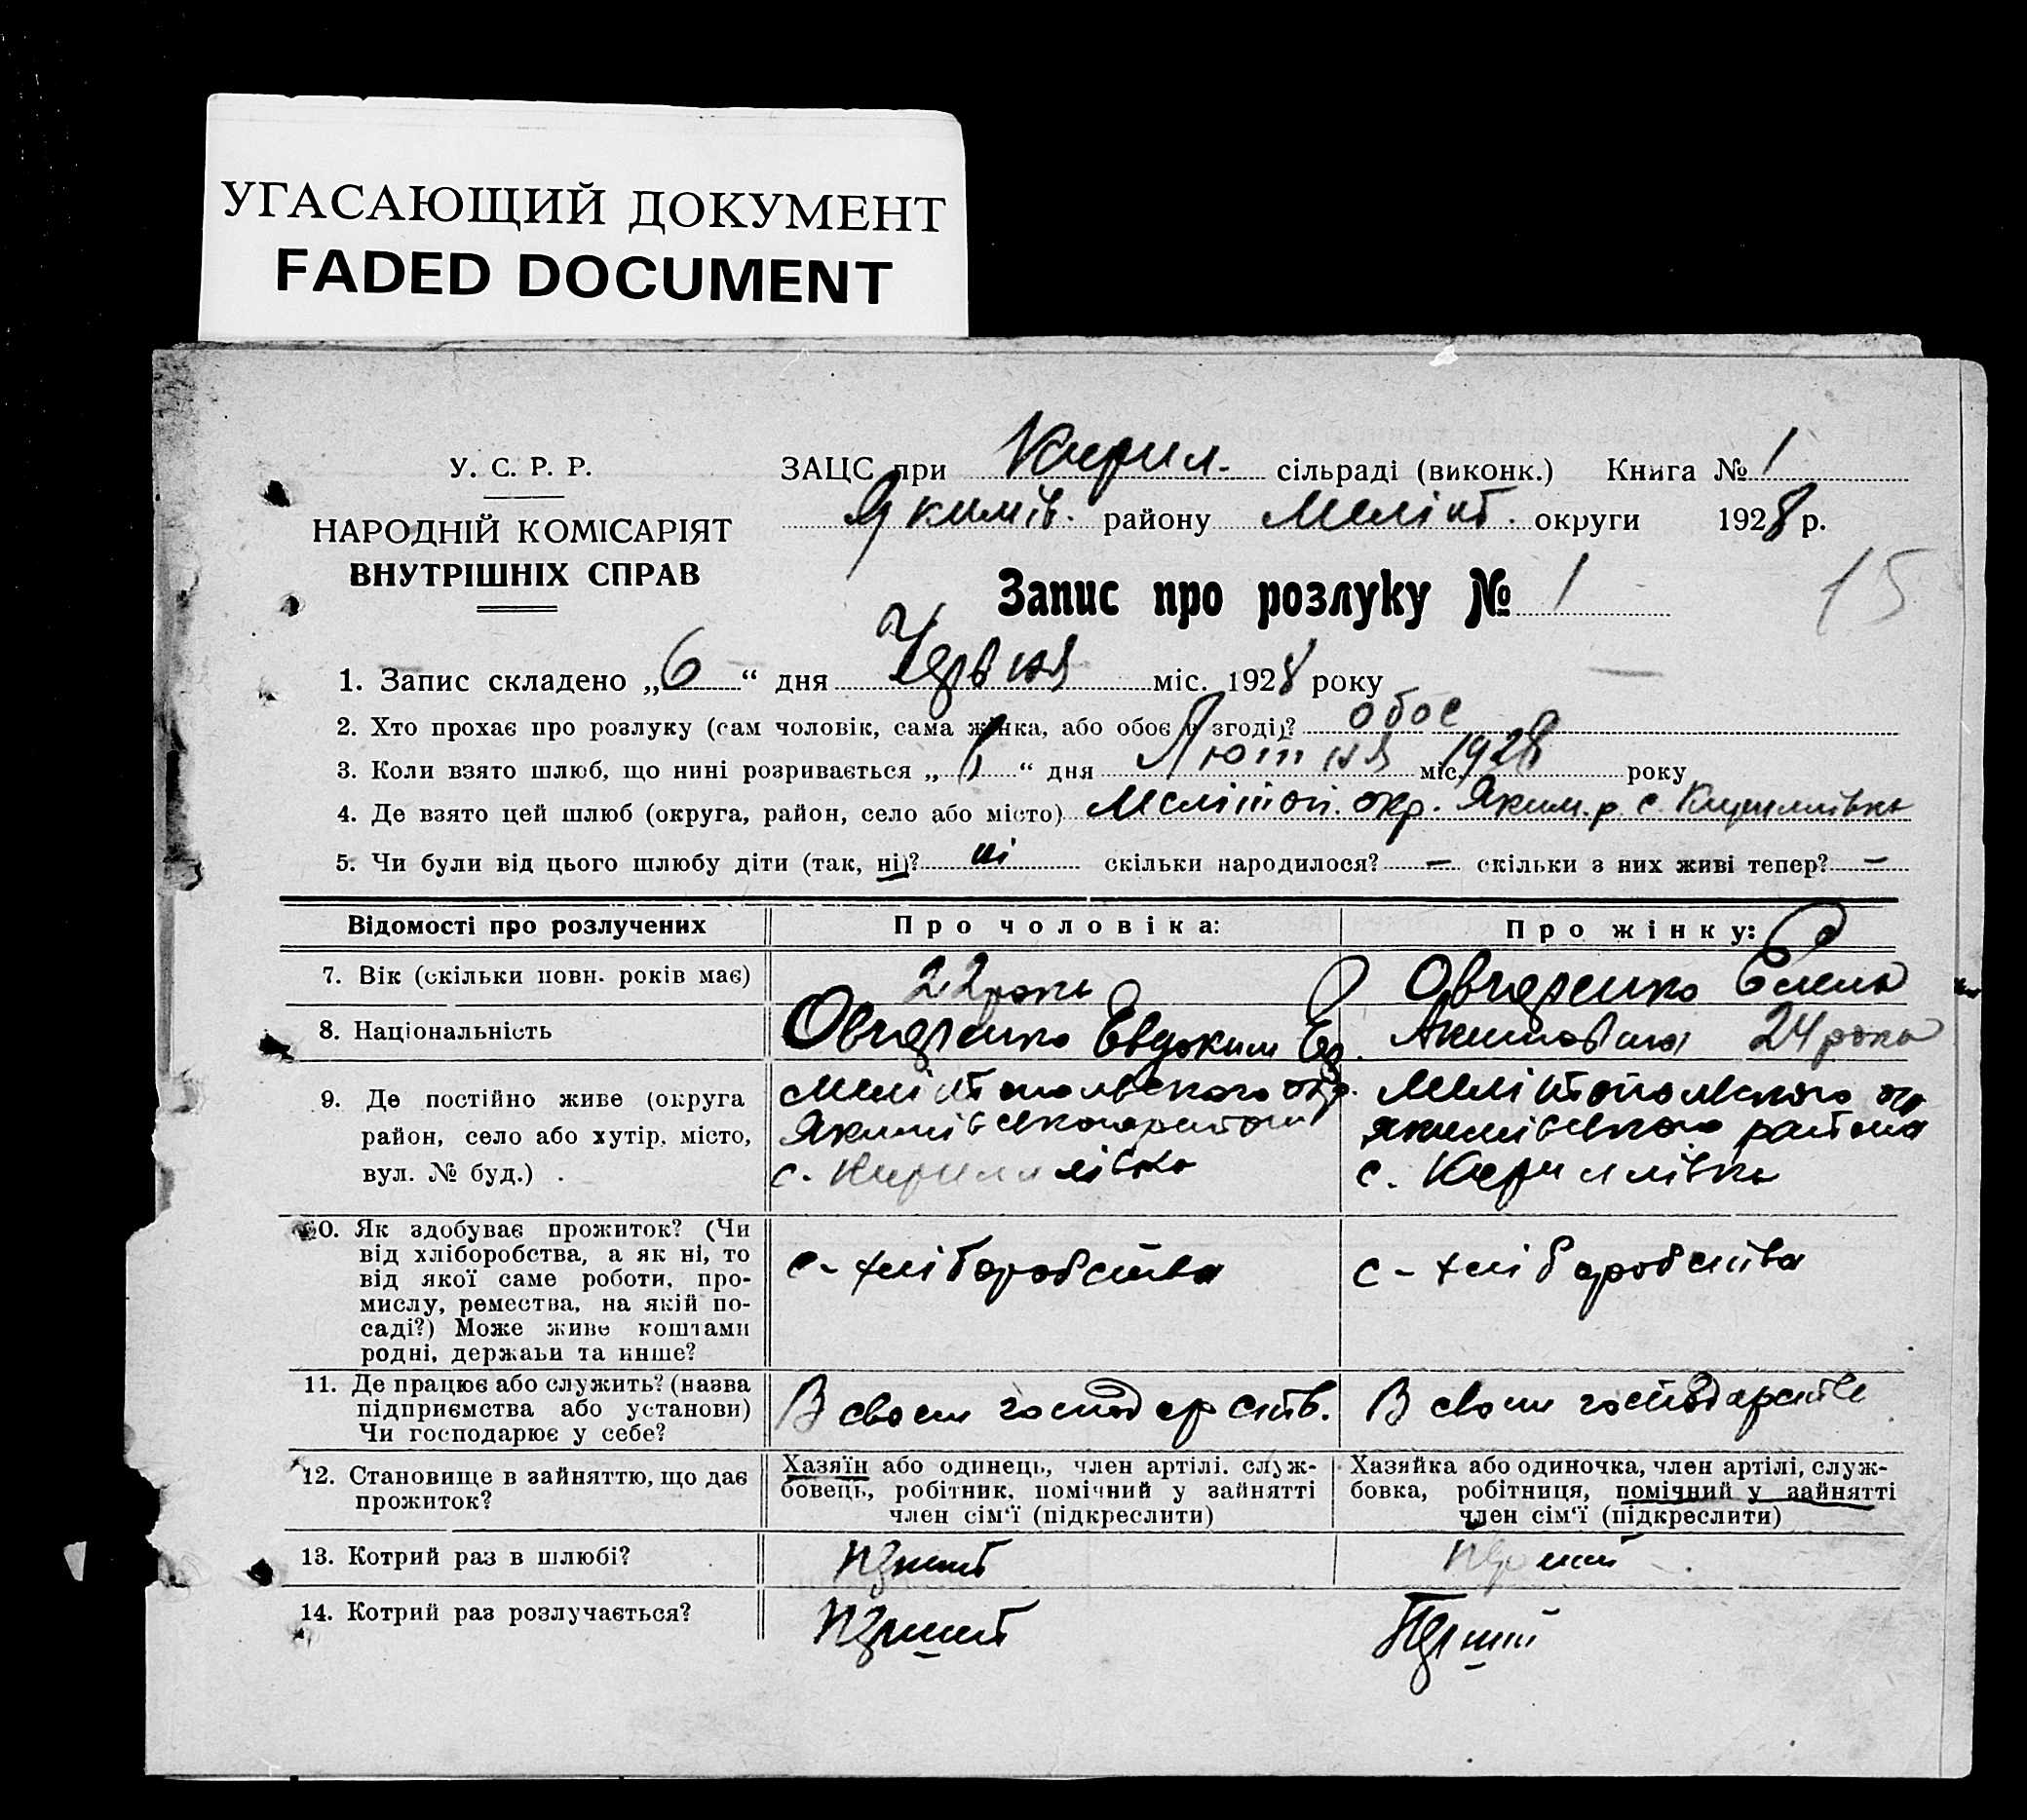 УГАСАЮЩИЙ ДОКУМЕНТ
FADED DOCUMENT
У. С. Р. Р.
НАРОДНІЙ КОМІСАРІЯТ
ВНУТРІШНІХ СПРАВ
ЗАЦС при Кирил. сільраді (виконк.) Книга № 1
Якимів. району Меліт. округи 1928 р.
Запис про розлуку № 1
15
1. Запис складено „6“ дня Червня міс. 1928 року
2. Хто прохає про розлуку (сам чоловік, сама жінка, або обоє в згоді)? обоє
3. Коли взято шлюб, що нині розривається „ “ дня Лютня міс. 1928 року
4. Де взято цей шлюб (округа, район, село або місто) Мелітоп. окр. Яким. р. с. Кириллівка
5. Чи були від цього шлюбу діти (так, ні)? ні скільки народилося? — скільки з них живі тепер? —
Відомості про розлучених
Про чоловіка:
Про жінку:
7. Вік (скільки повн. років має)
22 роки
Овчаренко Елена
8. Національність
Овчаренко Евдоким
Акимовна 24 роки
9. Де постійно живе (округа
район, село або хутір, місто,
вул. № буд.) .
Мелітопольского окр.
Якимівского району
с. Кириллівка
Мелітопольского
якимівського района
с. Кириллівка
10. Як здобуває прожиток? (Чи
від хліборобства, а як ні, то
від якої саме роботи, про-
мислу, ремества, на якій по-
саді?) Може живе коштами
родні, держави та инше?
с-хліборобства
с-хліборобства
11. Де працює або служить? (назва
підприємства або установи)
Чи господарює у себе?
В своем господарств.
В своем господарстве
12. Становище в зайняттю, що дає
прожиток?
Хазяїн або одинець, член артілі. служ-
бовець, робітник, помічний у зайнятті
член сім‘ї (підкреслити)
Хазяйка або одиночка, член артілі, служ-
бовка, робітниця, помічний у зайнятті
член сім‘ї (підкреслити)
13. Котрий раз в шлюбі?
перший
перший
14. Котрий раз розлучається?
перший
Перший